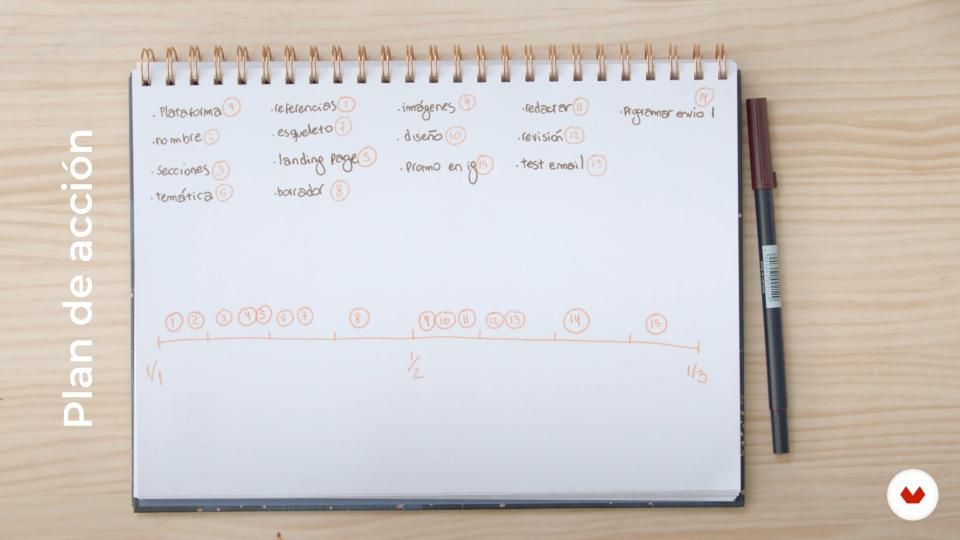 Plan de acción
. Plataforma 4
. nombre 2
. secciones 3
. temática 6
. referencias 1
. esqueleto 7
. landing page 5
. borrador 8
. imágenes 9
. diseño 10
. promo en ig 15
. redactar 11
. revisión 12
. test email 13
. Programar envio 1 14
1 2 3 4 5 6 7 8 9 10 11 12 13 14 15
1/1 1/2 1/3